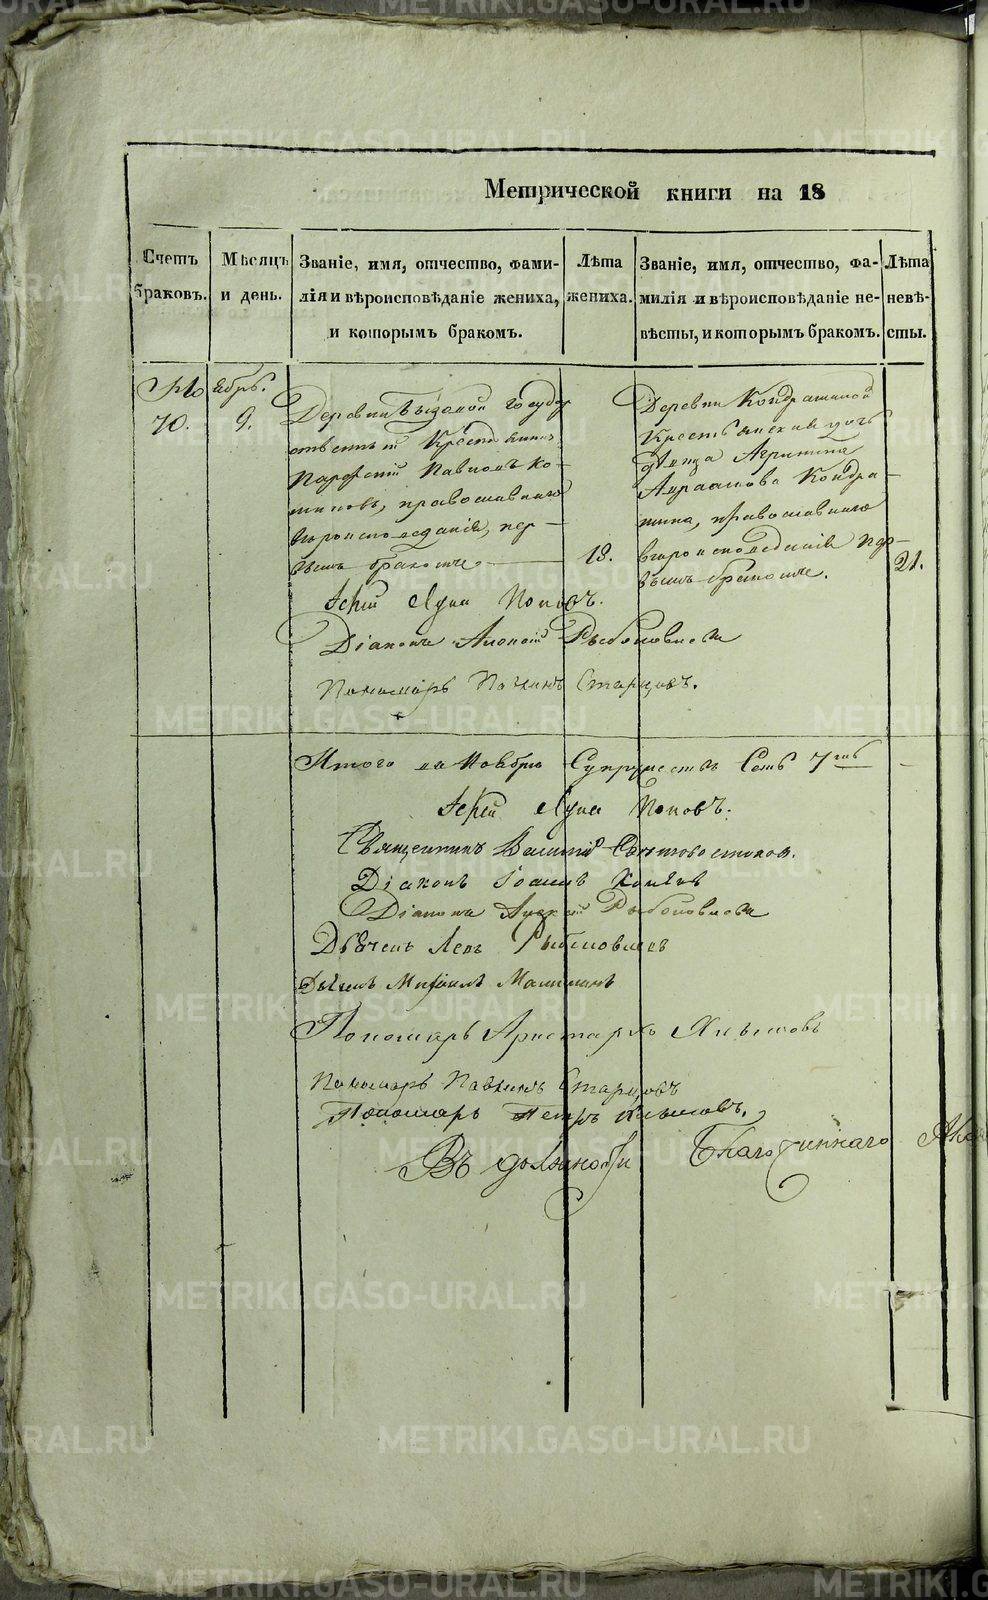 Метрической книги на 18
Счетъ браковъ.
Мѣсяцъ и день.
Званіе, имя, отчество, фами-
лія и вѣроисповѣданіе жениха,
и которымъ бракомъ.
Лѣта жениха.
Званіе, имя, отчество, фа-
милія и вѣроисповѣданіе не-
вѣсты, и которымъ бракомъ.
Лѣта невѣ-
сты.
70.
9.
Деревни государ
Крестьянинъ
Парфеній Павловъ Ко-
православнаго
вѣроисповеданія, пер-
вымъ бракомъ
18.
Деревни Кондратиной
Крестьянская дочь
девица Агрипина
Авраамова Кондра-
тина, православнаго
вѣроисповеданія пер-
вымъ бракомъ.
21.
Іерей Лука Поповъ.
Діаконъ Алексій Рыболовлевъ
Пономарь Павлинъ Старцовъ.
Итого въ Ноябрѣ Супружествъ Семь 7
Іерей Лука Поповъ.
Священникъ Василій
Діаконъ Іоаннъ
Діаконъ Алексій Рыболовлевъ
Дьячекъ Левъ Рыболовлевъ
Дьячекъ Михаилъ
Пономарь Аристархъ
Пономарь Павлинъ Старцовъ
Пономарь Петръ
Въ должности Благочиннаго
METRIKI.GASO-URAL.RU